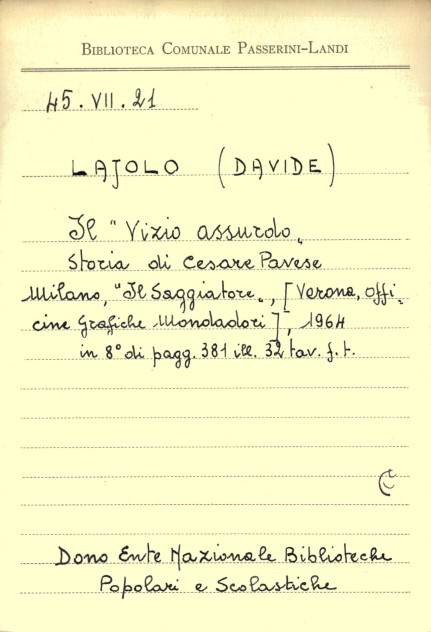 BIBLIOTECA COMUNALE PASSERINI-LANDI
45.VII.21
LAJOLO (DAVIDE)
Il "Vizio assurdo„
Storia di Cesare Pavese
Milano, "Il Saggiatore„, [Verona, offi-
cine Grafiche Mondadori], 1964
in 8° di pagg. 381 ill. 32 tav. f. t.
Dono Ente Nazionale Biblioteche
Popolari e Scolastiche